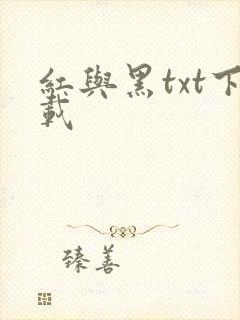 紅與黑txt下
載
臻善